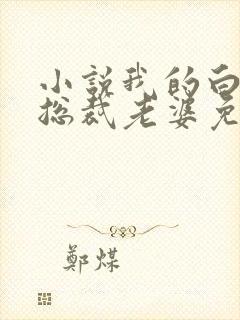 小說我的白
总裁老婆免
鄭煤